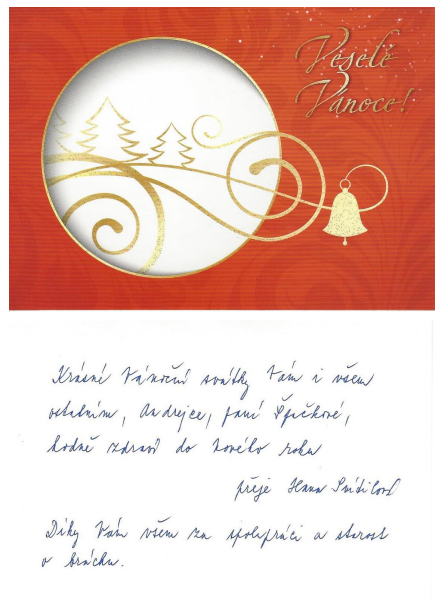 Veselé
Vánoce!
Krásné Vánoční svátky Vám i všem
ostatním, Andrejce, paní Špičkové,
hodně zdraví do nového roku
přeje Hana
Díky Vám všem za spolupráci a starost
o bráchu.